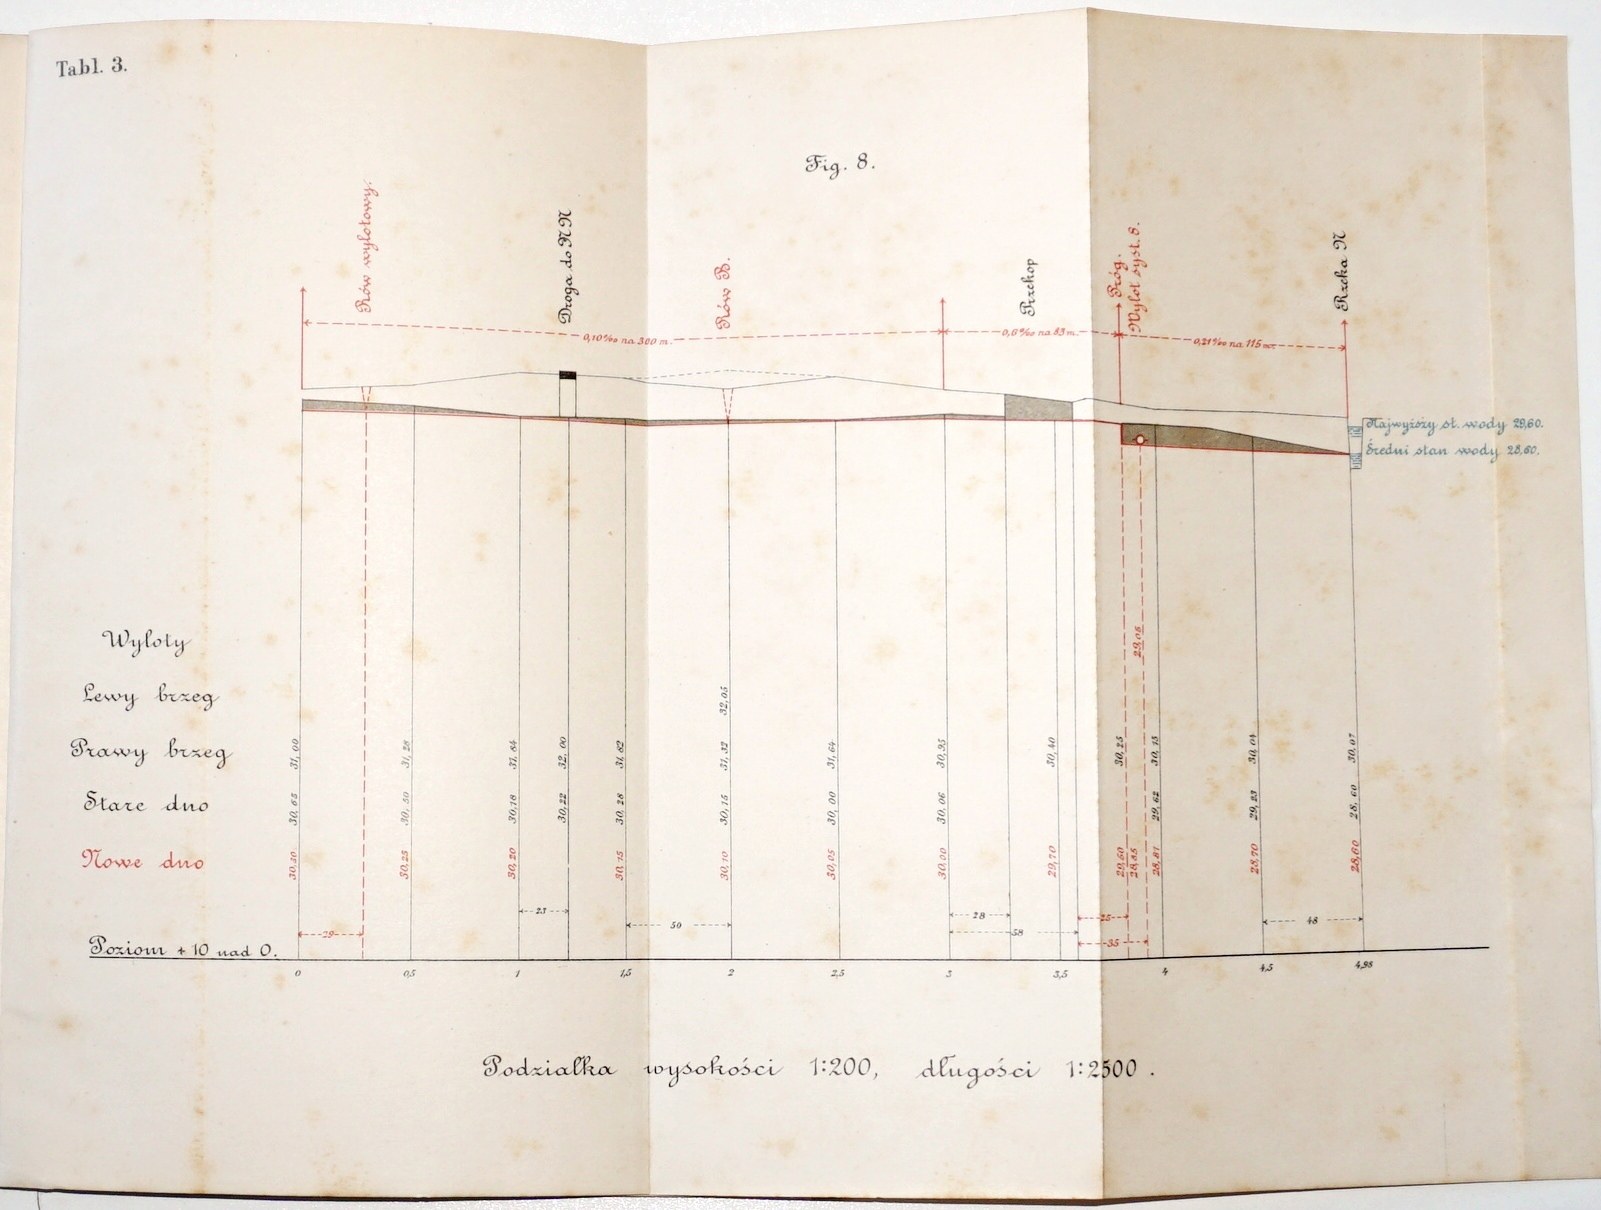 Tabl. 3.
Fig. 8.
Rów wylotowy.
Droga do N N
Rów B.
Przekop
Próg.
Wylot syst. 8.
Rzeka N
0,10‰ na 300 m.
0,6‰ na 83 m.
0,21‰ na 115 m.
Najwyższy st. wody 29,60.
Średni stan wody 28,60.
Wyloty
29,05
Lewy brzeg
32,05
Prawy brzeg
31,00 31,28 31,84 32,00 31,82 31,32 31,64 30,95 30,40 30,25 30,15 30,04 30,07
Stare dno
30,65 30,50 30,18 30,22 30,28 30,15 30,00 30,06 29,62 29,23 28,60
Nowe dno
30,40 30,25 30,20 30,15 30,10 30,05 30,00 29,70 29,60 28,85 28,81 28,70 28,60
23 28 25 48
29 50 58 35
Poziom + 10 nad 0.
0 0,5 1 1,5 2 2,5 3 3,5 4 4,5 4,98
Podziałka wysokości 1:200, długości 1:2500.